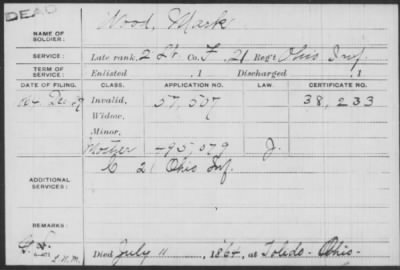 DEAD
NAME OF SOLDIER: Wood, Mark
SERVICE: Late rank, 2 Lt Co. F, 21 Reg't Ohio Inf.
TERM OF SERVICE: Enlisted , 1 Discharged , 1
DATE OF FILING. CLASS. APPLICATION NO. LAW. CERTIFICATE NO.
Dec Invalid, 57,507 38,233
Widow,
Minor,
Mother 495,079 J.
ADDITIONAL SERVICES: C 21 Ohio Inf.
REMARKS:
Died July 11 1864, at Toledo - Ohio -